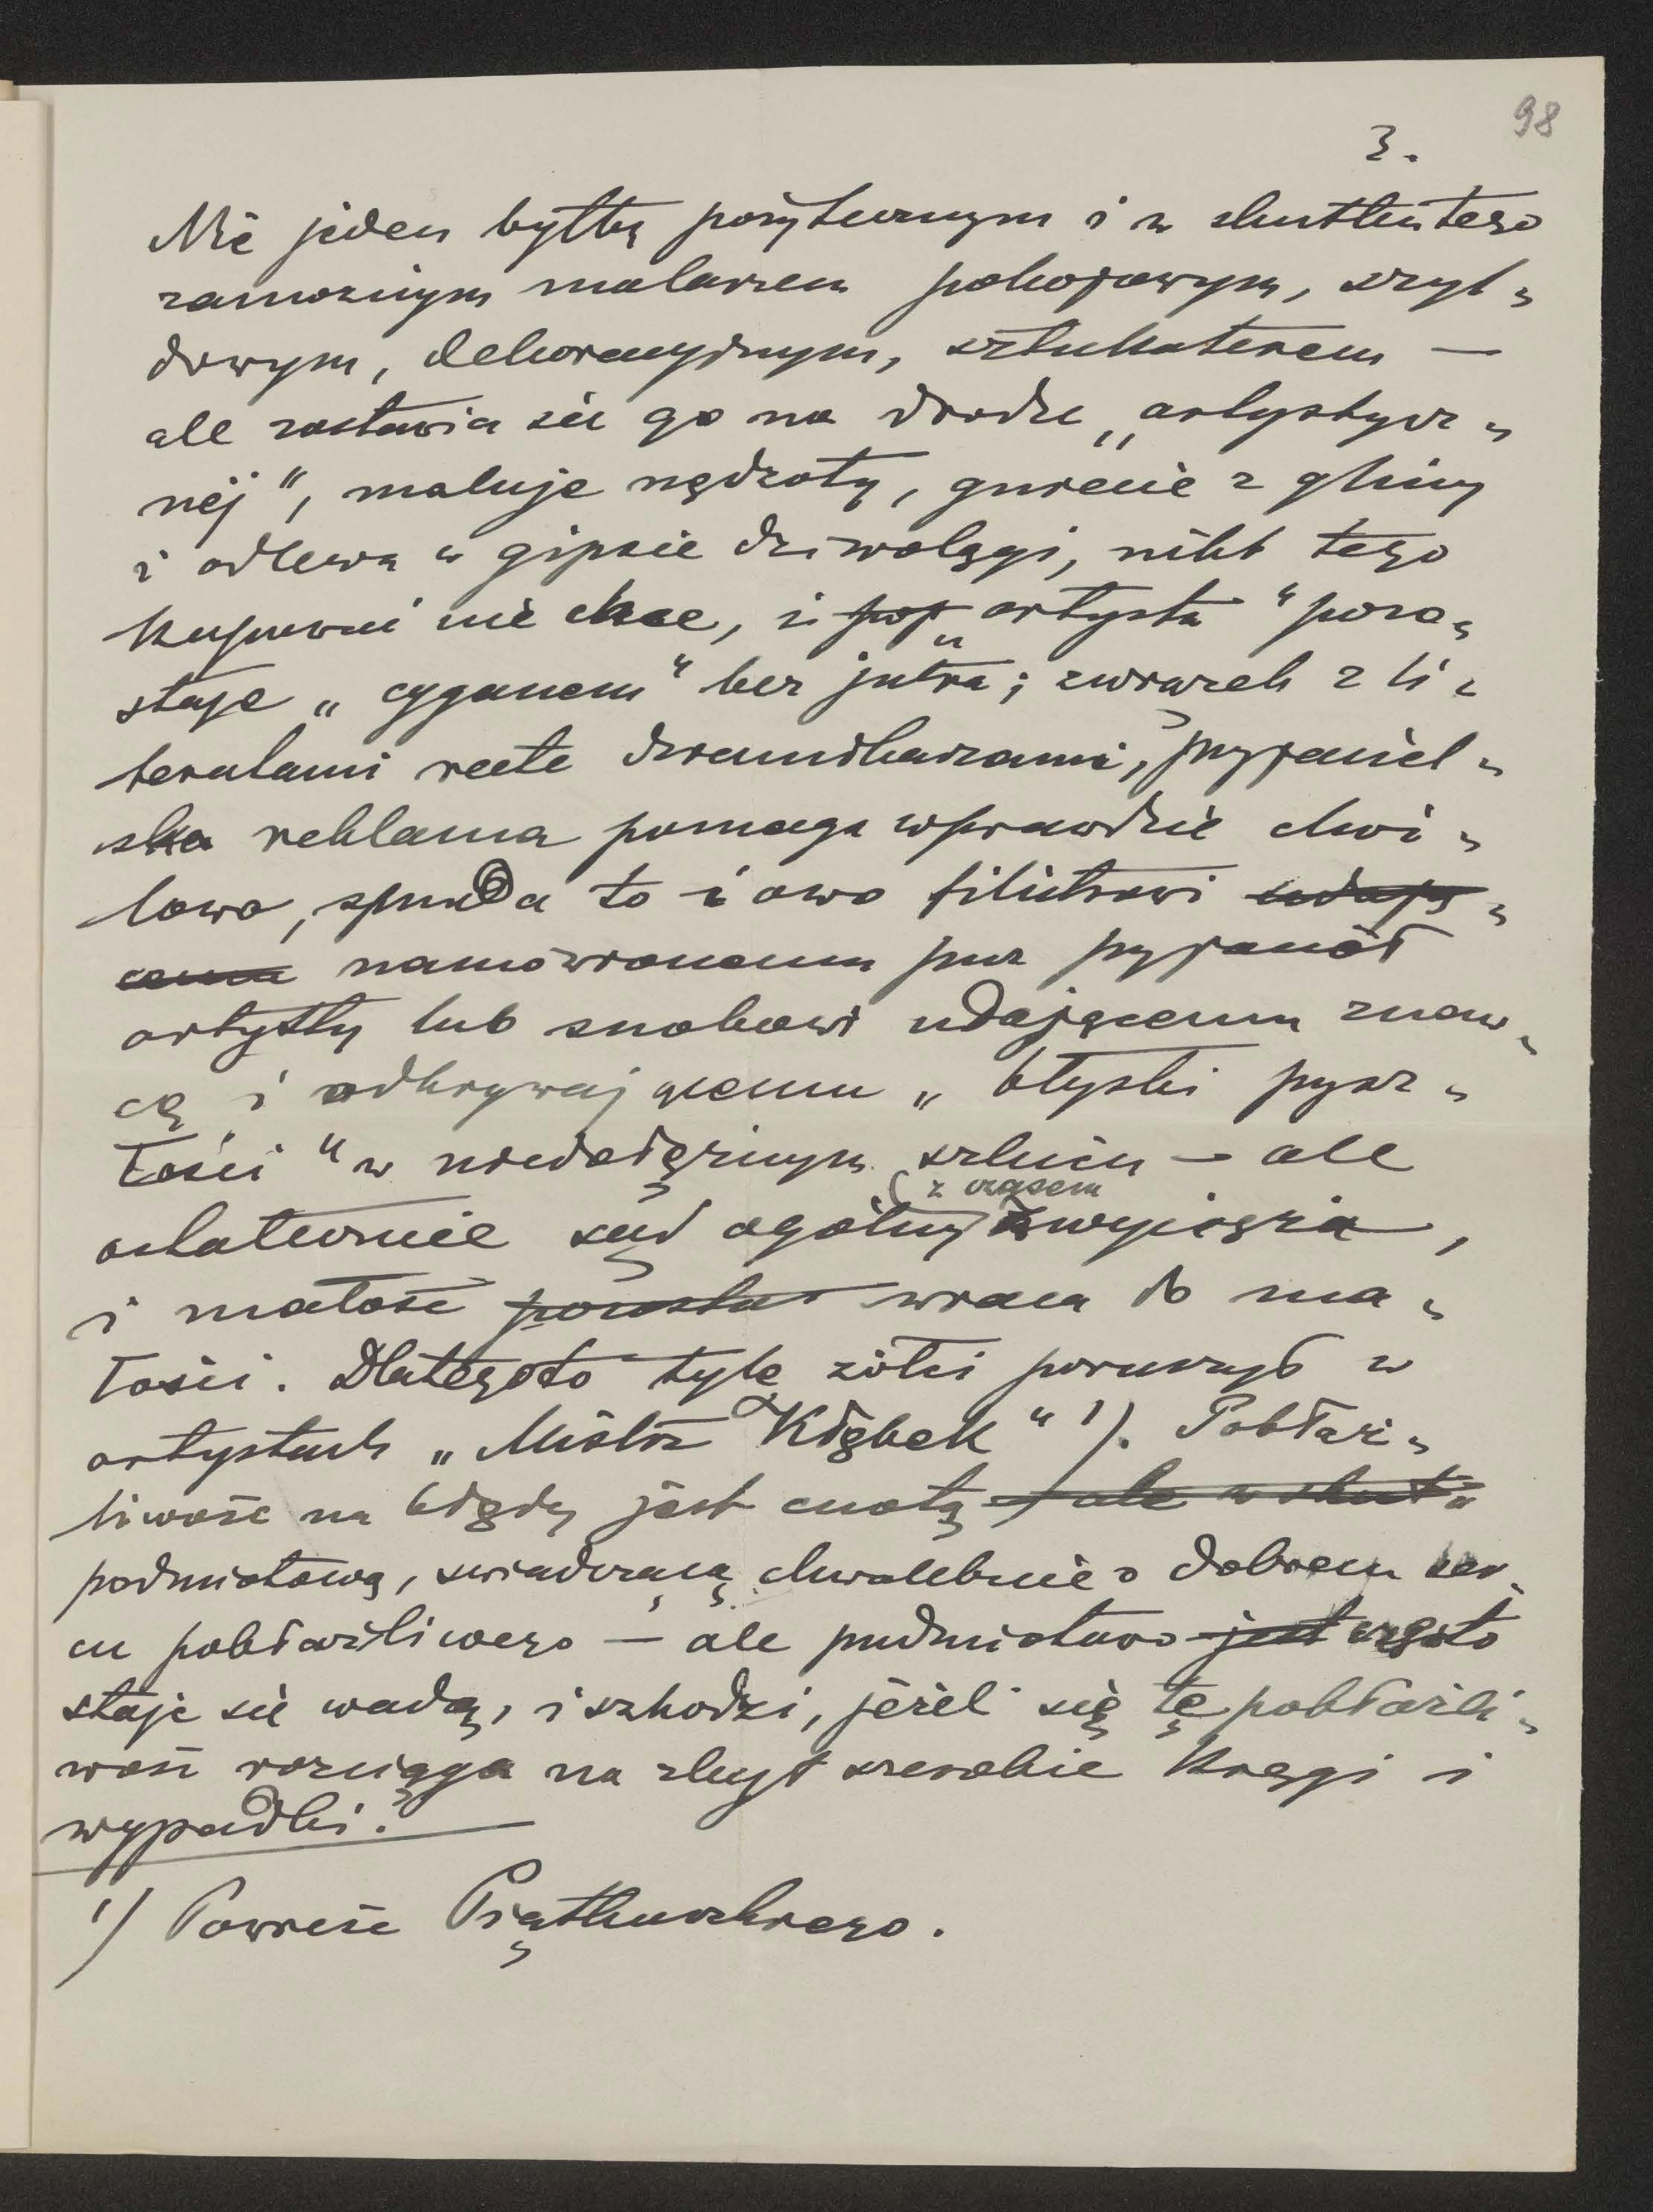 98
3.
Nie jeden byłby pożytecznym i w skutku tego
zamożnym malarzem pokojowym, szyl-
dowym, dekoracyjnym, sztukaterem —
ale zostawia się go na drodze „artystycz-
nej", maluje nędzoty, gniecie z gliny
i odlewa w gipsie dziwolągi, nikt tego
kupować nie chce, i pop „artysta" pozo-
staje „cyganem" bez jutra; związek z li-
teratami recte dziennikarzami, przyjaciel-
ska reklama pomaga wprawdzie chwi-
lowo, spręda to i owo filistrowi udają-
cemu namówionemu przez przyjaciół
artysty lub snobowi udającemu znaw-
cę i odkrywającemu „błyski przysz-
łości" w niedołężnym szkicu — ale
ostatecznie sąd ogólny z czasem zwycięża,
i małość pozosta wraca do ma-
łości. Dlategoto tyle żółci poruszył w
artystach „Mistrz Kłębek" 1). Pobłaż-
liwość na błędy jest cnotą ale w skut
podmiotową, świadczącą chwalebnie o dobrem ser-
cu pobłażliwego — ale przedmiotowo jest często
staje się wadą, i szkodzi, jeżeli się tę pobłażli-
wość rozciąga na zbyt szerokie kręgi i
wypadki.
1) Powieść Piątkowskiego.